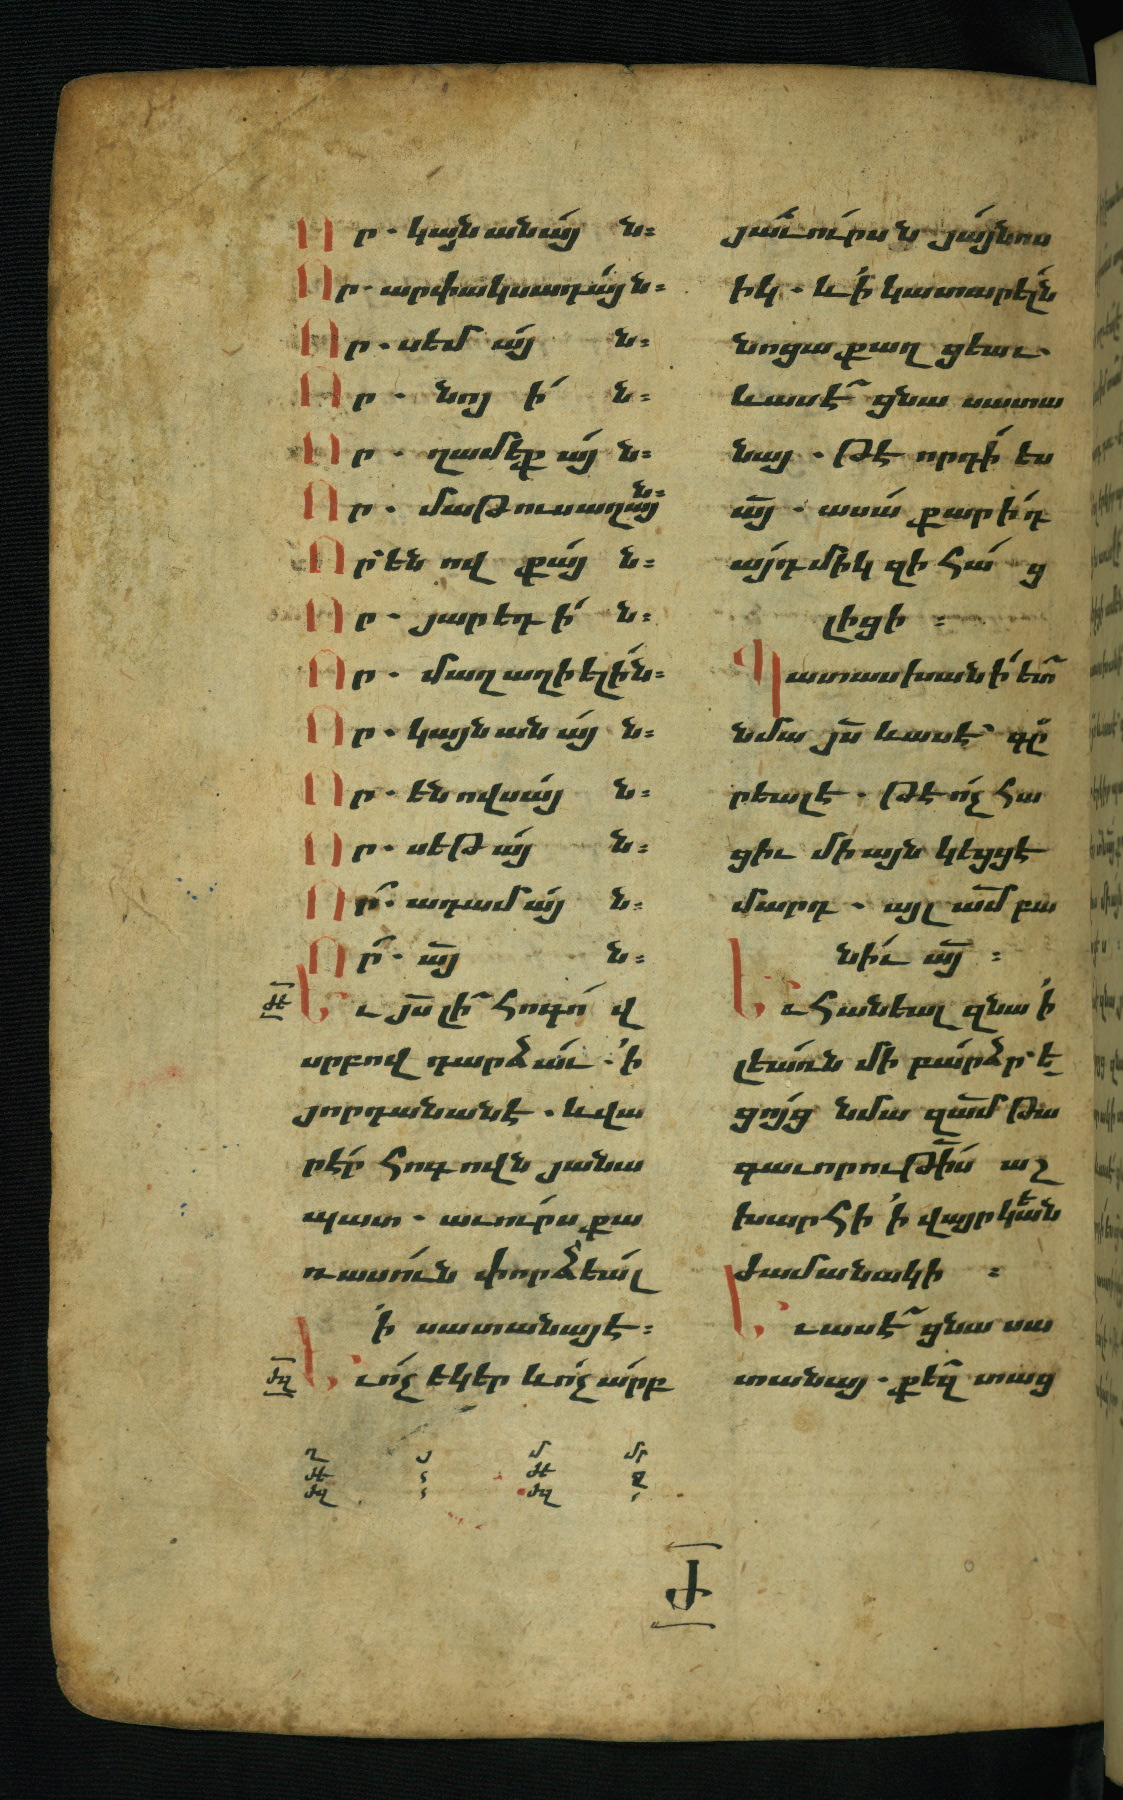 Որ · կայնանայ ն։
Որ · արփաքսադայ ն։
Որ · սեմ այ ն։
Որ · նոյ ի ն։
Որ · ղամեքայ ն։
Որ · մաթուսաղայ ն։
Որ՝ ենովքայ ն։
Որ · յարեդի ն։
Որ · մաղաղիելին։
Որ · կայնանայ ն։
Որ · ենովսայ ն։
Որ · սեթայ ն։
Որ · ադամայ ն։
Որ · ա՟յ ն։
ԺԵ Եւ յ՟ս լի հոգով
սրբով դարձաւ · ՚ի
յորդանանէ · և վա
րէր հոգովն յանա
պատ · աւուրս քա
ռասուն փորձեալ
՚ի սատանայէ։
ԺԶ Եւ ոչ եկեր և ոչ արբ
յաւուրսն յայնոս
իկ · և ՚ի կատարելն
նոցա քաղցեաւ
և ասէ ցնա սատա
նայ · թէ որդի ես
ա՟յ · ասա քարիդ
այդմիկ զի հաց
լիցի ։
Պատասխանի ետ
նմա յ՟ս և ասէ գր
րեալ է · թէ ոչ հա
ցիւ միայն կեցցէ
մարդ · այլ ամ բա
նիւ ա՟յ ։
Եւ հանեալ զնա ՚ի
լեառն մի բարձր՝ ե
ցոյց նմա զամ թա
գաւորութիս աշ
խարհի ՚ի վայրկեան
ժամանակի ։
Եւ ասէ ցնա սա
տանայ · քեզ տաց
ժ